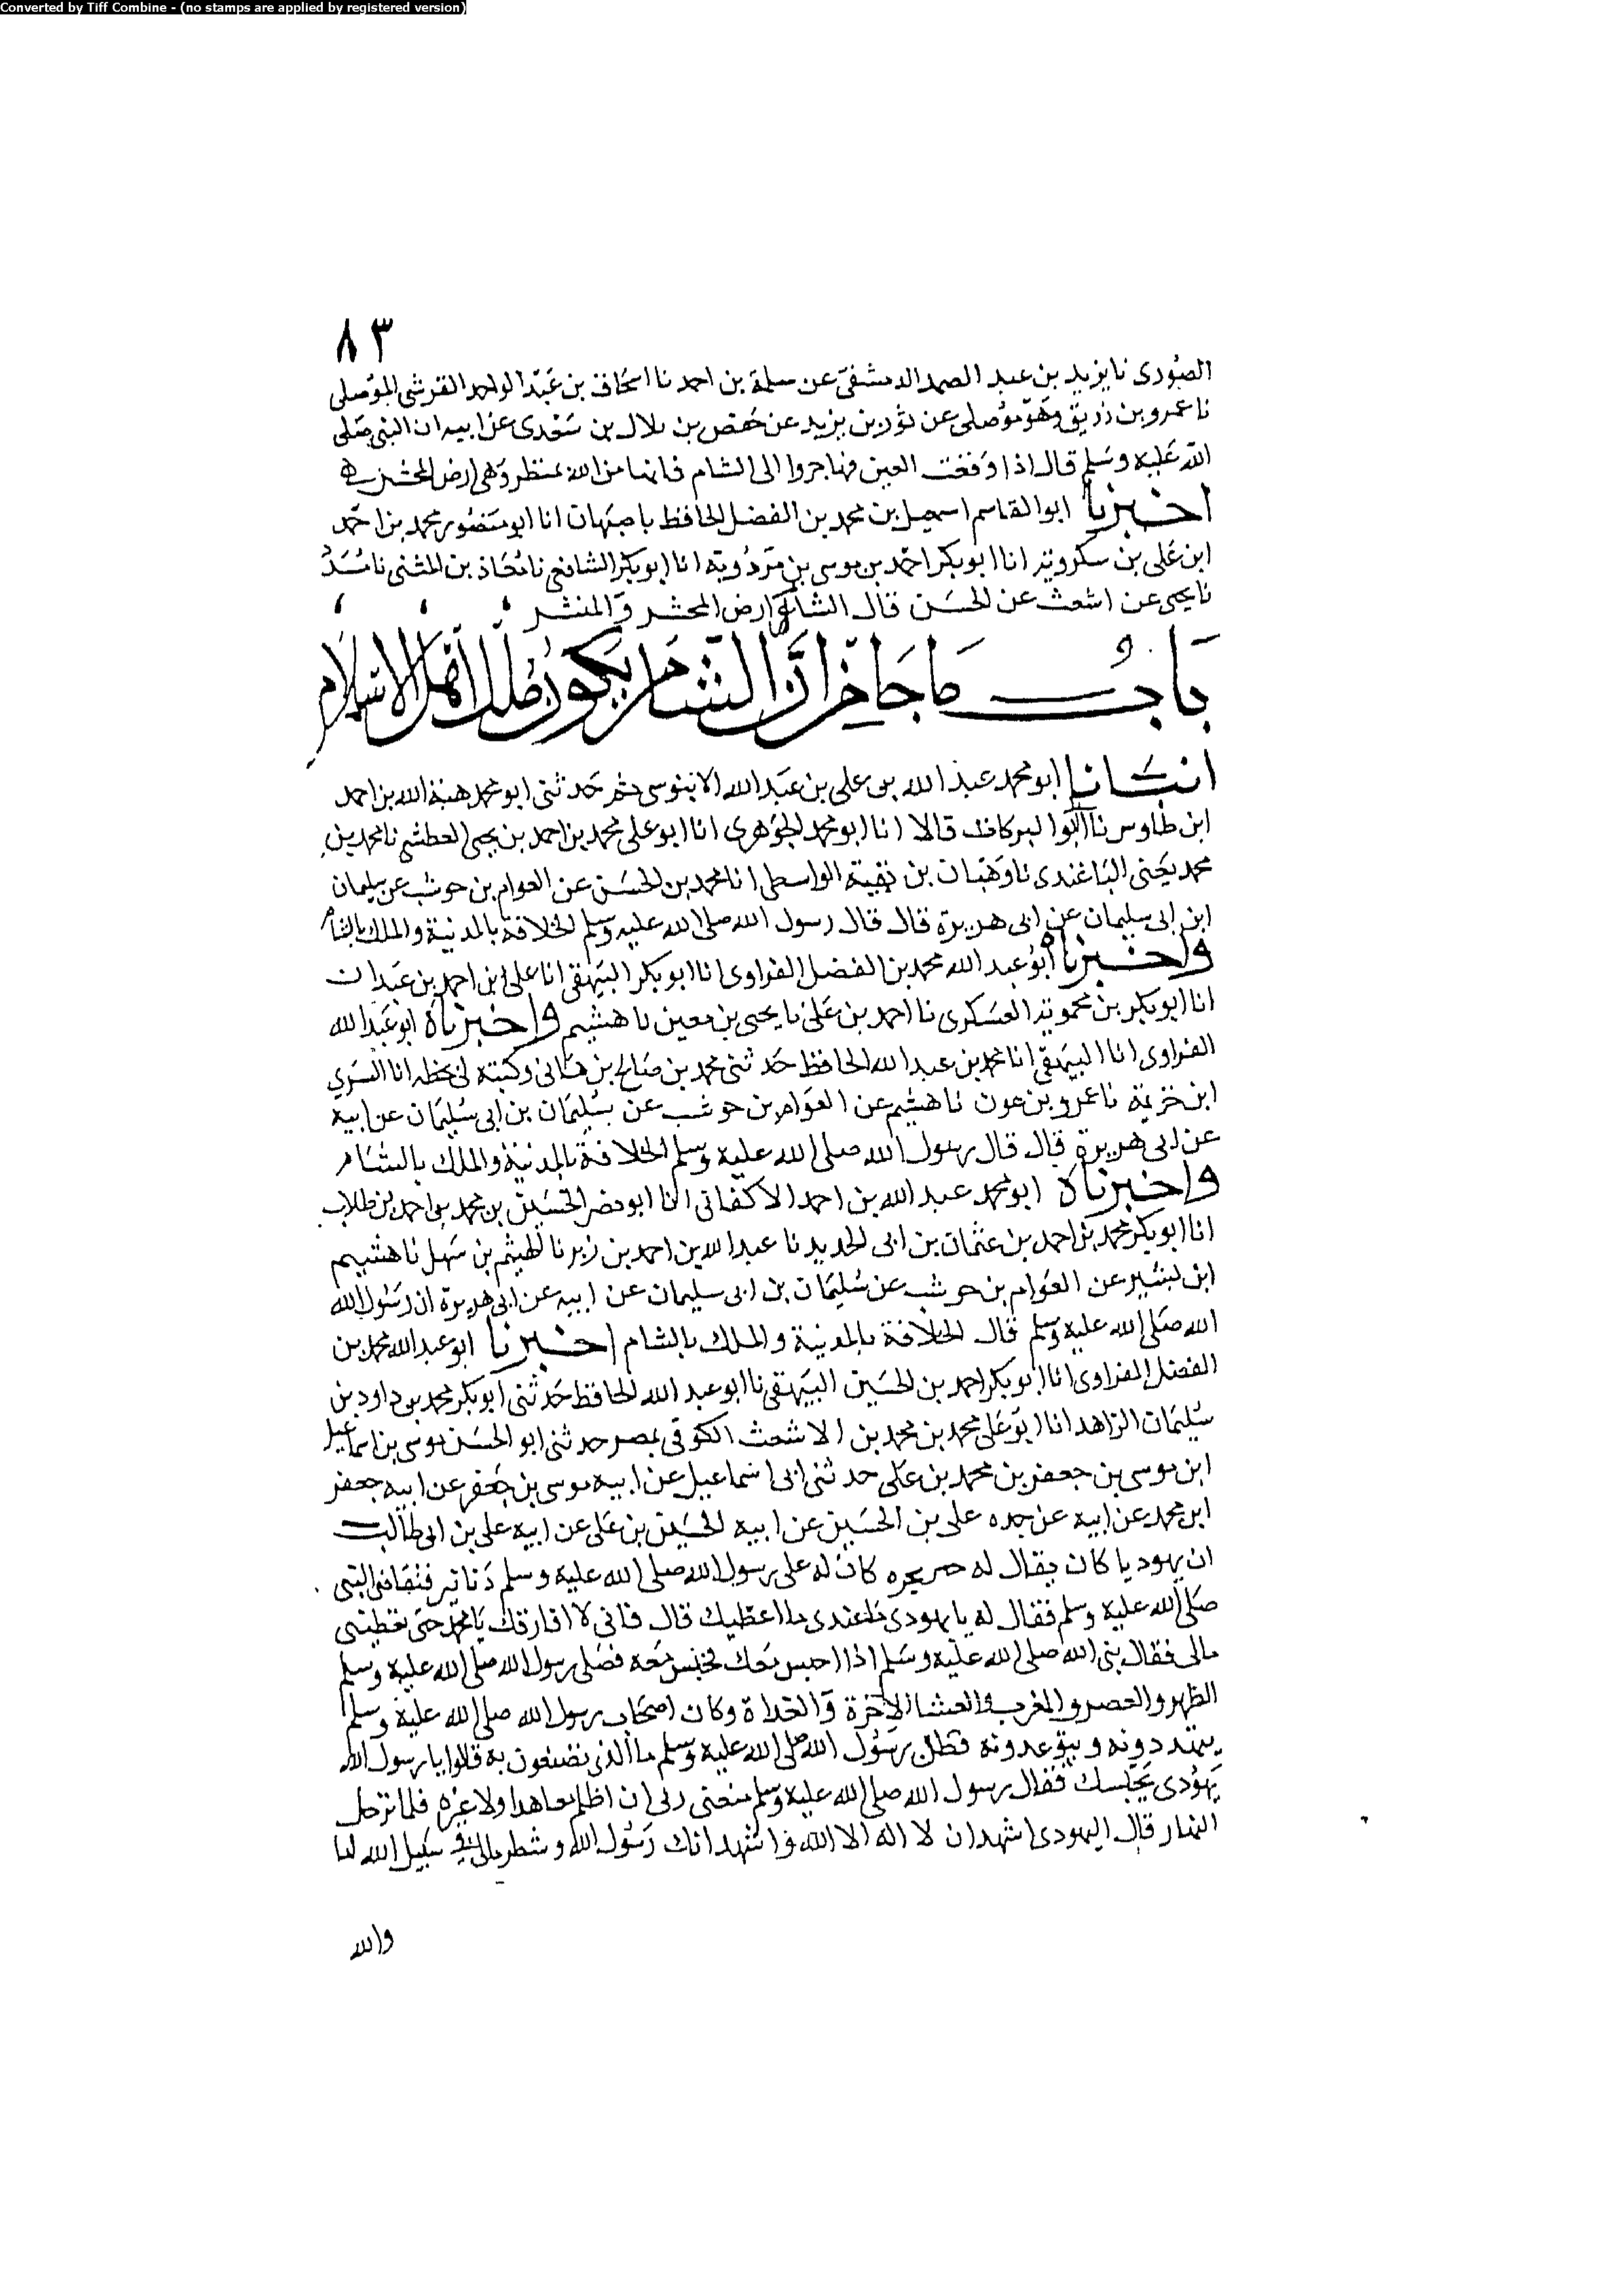 Converted by Tiff Combine - (no stamps are applied by registered version)
٨٣
الصورى نا يزيد بن عبد الصمد الدمشقى عن سلمة بن احمد نا اسحاق بن عبد الواحد القرشى الموصلى
نا عمرو بن زريق وهو موصلى عن ثور بن يزيد عن حفص بن بلال بن سعدى عن ابيه ان النبى صلى
الله عليه وسلم قال اذا وقعت العين فهاجروا الى الشام فانها من الله بمنظر وهى ارض المحشر
اخبرنا ابو القاسم اسمعيل بن محمد بن الفضل الحافظ باصبهان انا ابو منصور محمد بن احمد
ابن على بن سكرويه انا ابو بكر احمد بن موسى بن مردويه انا ابو بكر الشافعى نا معاذ بن المثنى نا مسدد
نا يحيى عن اشعث عن الحسن قال الشام ارض المحشر والمنشر
باب ما جا فى ان الشام يكون ملك اهل الاسلام
انبانا ابو محمد عبد الله بن على بن عبد الله الابنوسى ثم حدثنى ابو محمد هبة الله بن احمد
ابن طاوس نا ابو البركات قالا انا ابو محمد الجوهرى انا ابو على محمد بن احمد بن يحيى العطشى نا محمد بن
محمد يحيى الباغندى نا وهبان بن بقية الواسطى انا محمد بن الحسن عن العوام بن حوشب عن سليمان
ابن ابى سليمان عن ابى هريرة قال قال رسول الله صلى الله عليه وسلم الخلافة بالمدنية والملك بالشام
واخبرنا ابو عبد الله محمد بن الفضل الفراوى انا ابو بكر البيهقى انا على بن احمد بن عبدان
انا ابو بكر بن محمويه العسكرى نا احمد بن على نا يحيى بن معين نا هشيم واخبرناه ابو عبد الله
الفراوى انا البيهقى انا محمد بن عبد الله الحافظ حدثنى محمد بن صالح بن هانى وكتبته لى بخطه انا السرى
ابن خزيمة نا عمرو بن عون نا هشيم عن العوام بن حوشب عن سليمان بن ابى سليمان عن ابيه
عن ابى هريرة قال قال رسول الله صلى الله عليه وسلم الخلافة بالمدنية والملك بالشام
واخبرناه ابو محمد عبد الله بن احمد الاكفانى انا ابو نصر الحسين بن محمد بن احمد بن طلاب
انا ابو بكر محمد بن احمد بن عثمان بن ابى الحديد نا عبد الله بن احمد بن زبر نا الهيثم بن سهل نا هشيم
ابن بشير عن العوام بن حوشب عن سليمان بن ابى سليمان عن ابيه عن ابى هريرة ان رسول الله
الله صلى الله عليه وسلم قال الخلافة بالمدنية والملك بالشام اخبرنا ابو عبد الله محمد بن
الفضل الفراوى انا ابو بكر احمد بن الحسين البيهقى نا ابو عبد الله الحافظ حدثنى ابو بكر محمد بن داود بن
سليمان الزاهد انا ابو على محمد بن محمد بن الاشعث الكوفى بمصر حدثنى ابو الحسن موسى بن اسماعيل
ابن موسى بن جعفر بن محمد بن على حدثنى ابى اسماعيل عن ابيه موسى بن جعفر عن ابيه جعفر
ابن محمد عن ابيه عن جده على بن الحسين عن ابيه الحسين بن على عن ابيه على بن ابى طالب
ان يهوديا كان يقال له كان له على رسول الله صلى الله عليه وسلم دنانير فتقاضى النبى
صلى الله عليه وسلم فقال له يا يهودى ما عندى ما اعطيك قال فانى لا افارقك يا محمد حتى تعطينى
مالى فقال نبى الله صلى الله عليه وسلم اذا احبس معك فجلس معه فصلى رسول الله صلى الله عليه وسلم
الظهر والعصر والمغرب والعشا الاخرة والغداة وكان اصحاب رسول الله صلى الله عليه وسلم
يتهددونه ويتوعدونه فطن رسول الله صلى الله عليه وسلم ما الذى تصنعون به قالوا يا رسول الله
يهودى يحبسك فقال رسول الله صلى الله عليه وسلم منعنى ربى ان اظلم معاهدا ولا غيره فلما ترحل
النهار قال اليهودى اشهد ان لا اله الا الله واشهد انك رسول الله وشطر مالى فى سبيل الله اما
والله